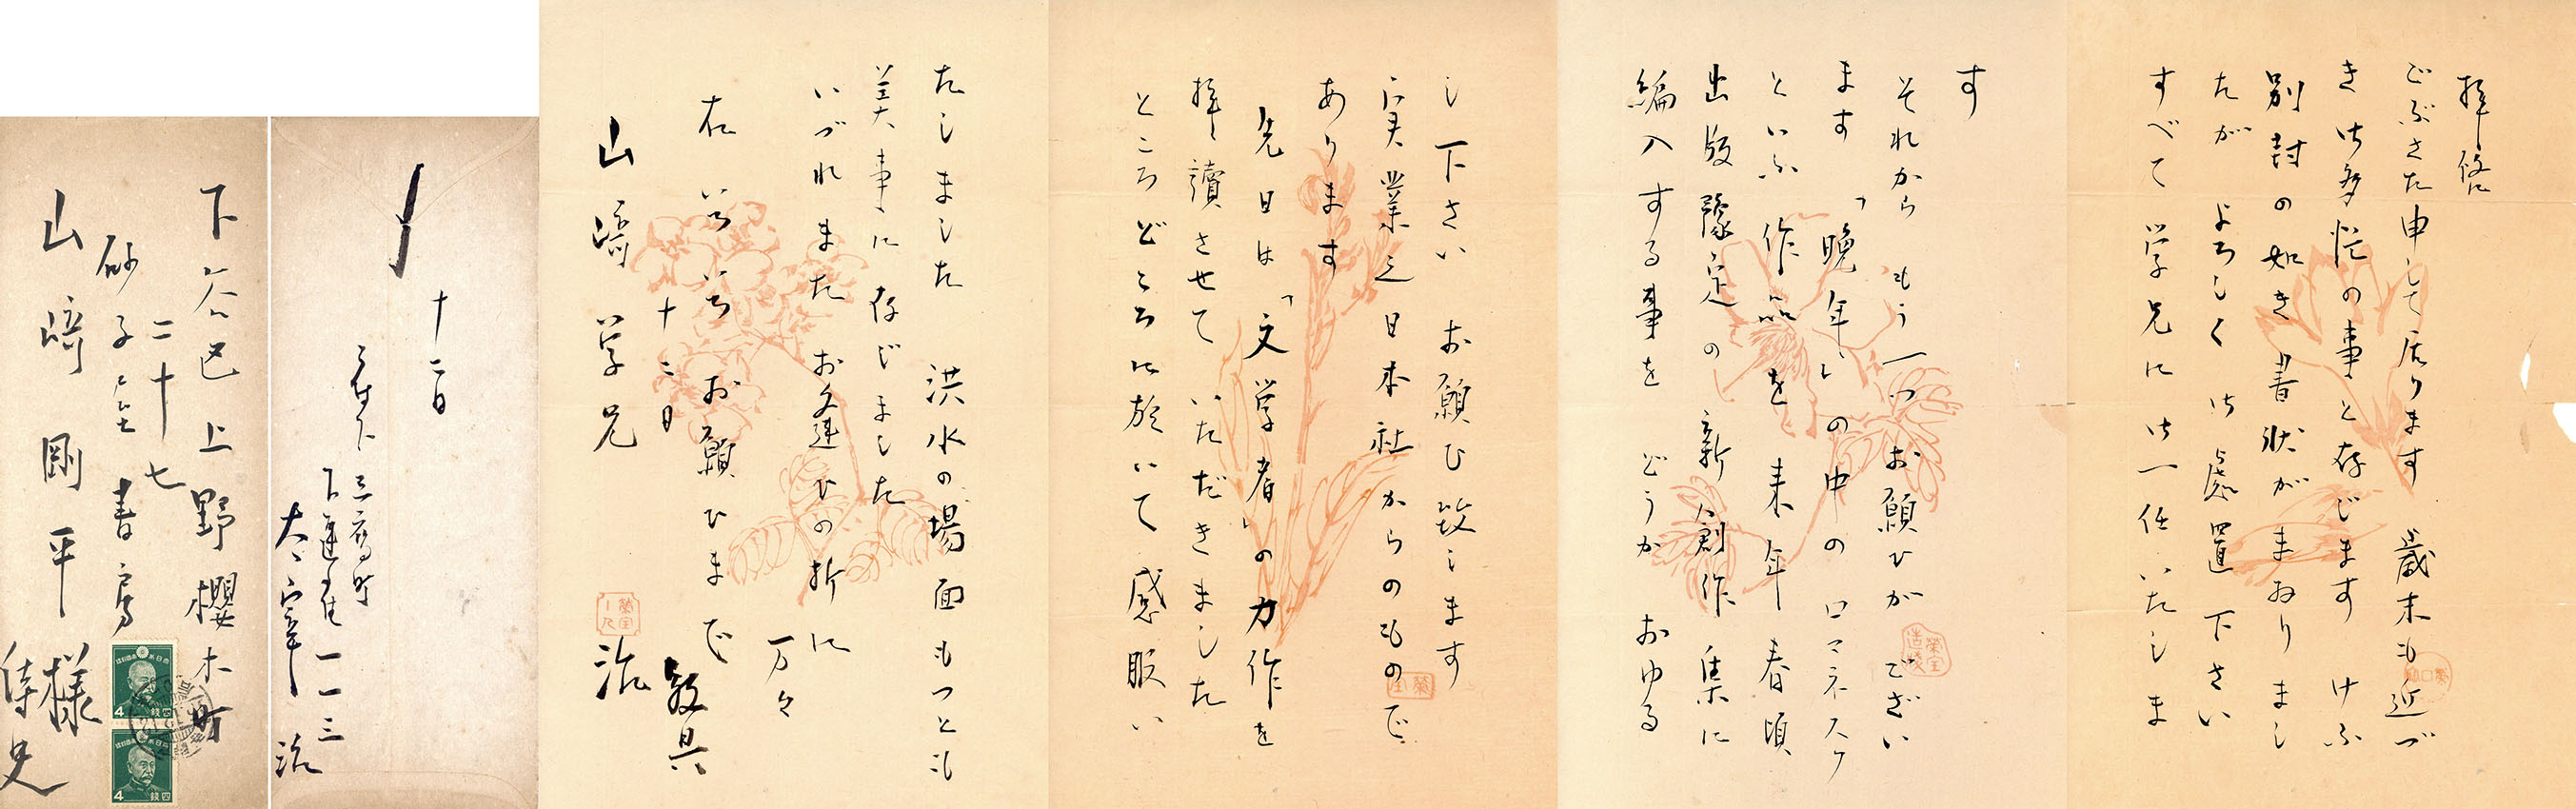 拝啓
ごぶさた申して居ります 歳末も近づ
き御多忙の事と存じます けふ
別封の如き書状がまゐりまし
たが よろしく御処置下さい
すべて学兄に御一任いたしま
す
それから もう一つお願ひがござい
ます 「晩年」の中のロマネスク
といふ作品を来年春頃
出版豫定の新創作集に
編入する事を どうか おゆる
し下さい お願ひ致します
実業之日本社からのもので
あります
先日は「文学者」の力作を
拝讀させていただきました
ところどころに於いて感服い
たしました 洪水の場面もつとも
美事に存じました
いづれまたお逢ひの折に
万々
右いろいろお願ひまで
敬具
十二日
治
山崎学兄
下谷区上野櫻木町
二十七
砂子屋書房
山崎剛平様
侍史
4
四錢
4
四錢
十二日
三鷹町
下連雀一一三
太宰治